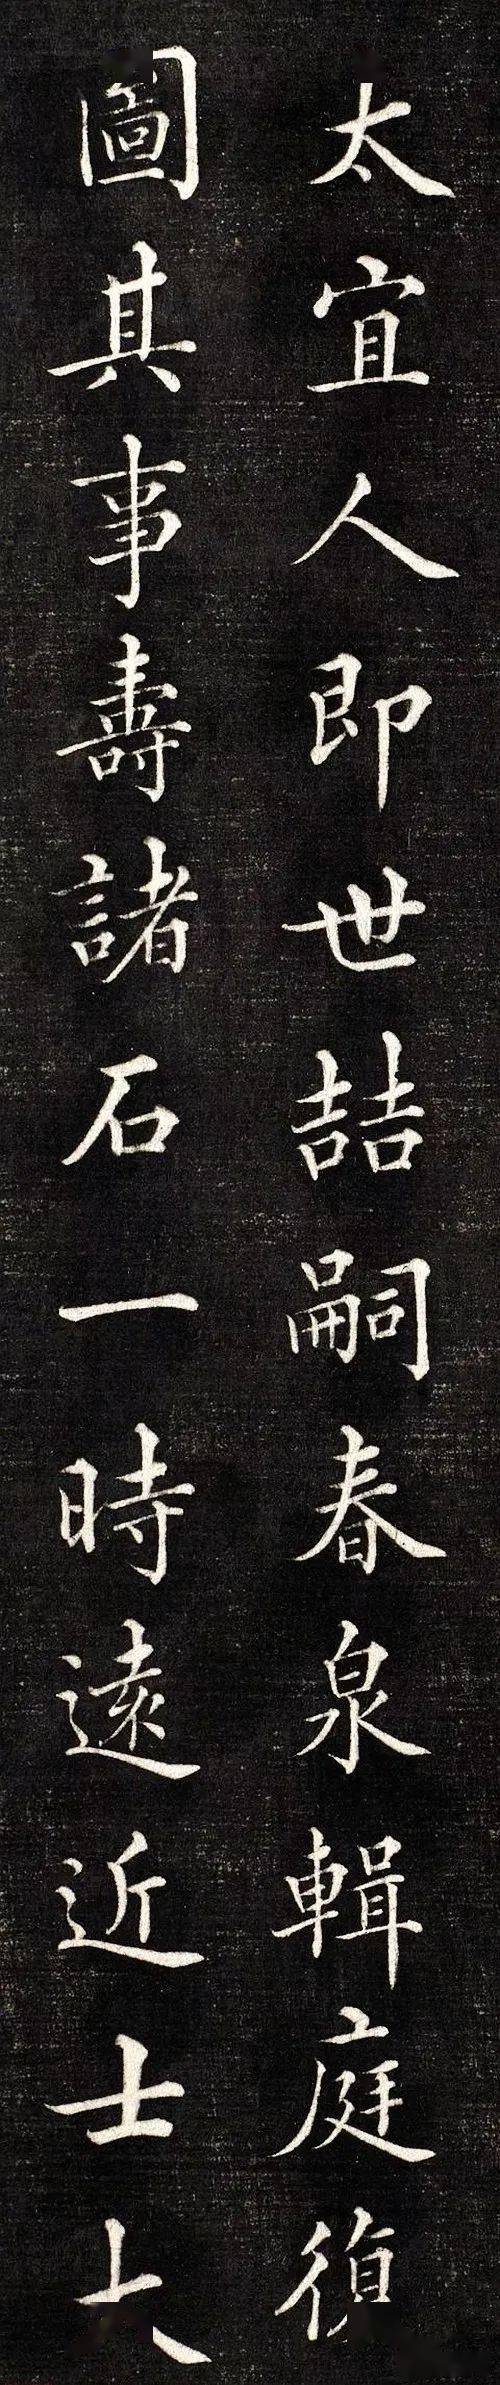 太宜人即世喆嗣春泉輯庭復
圖其事壽諸石一時遠近士大